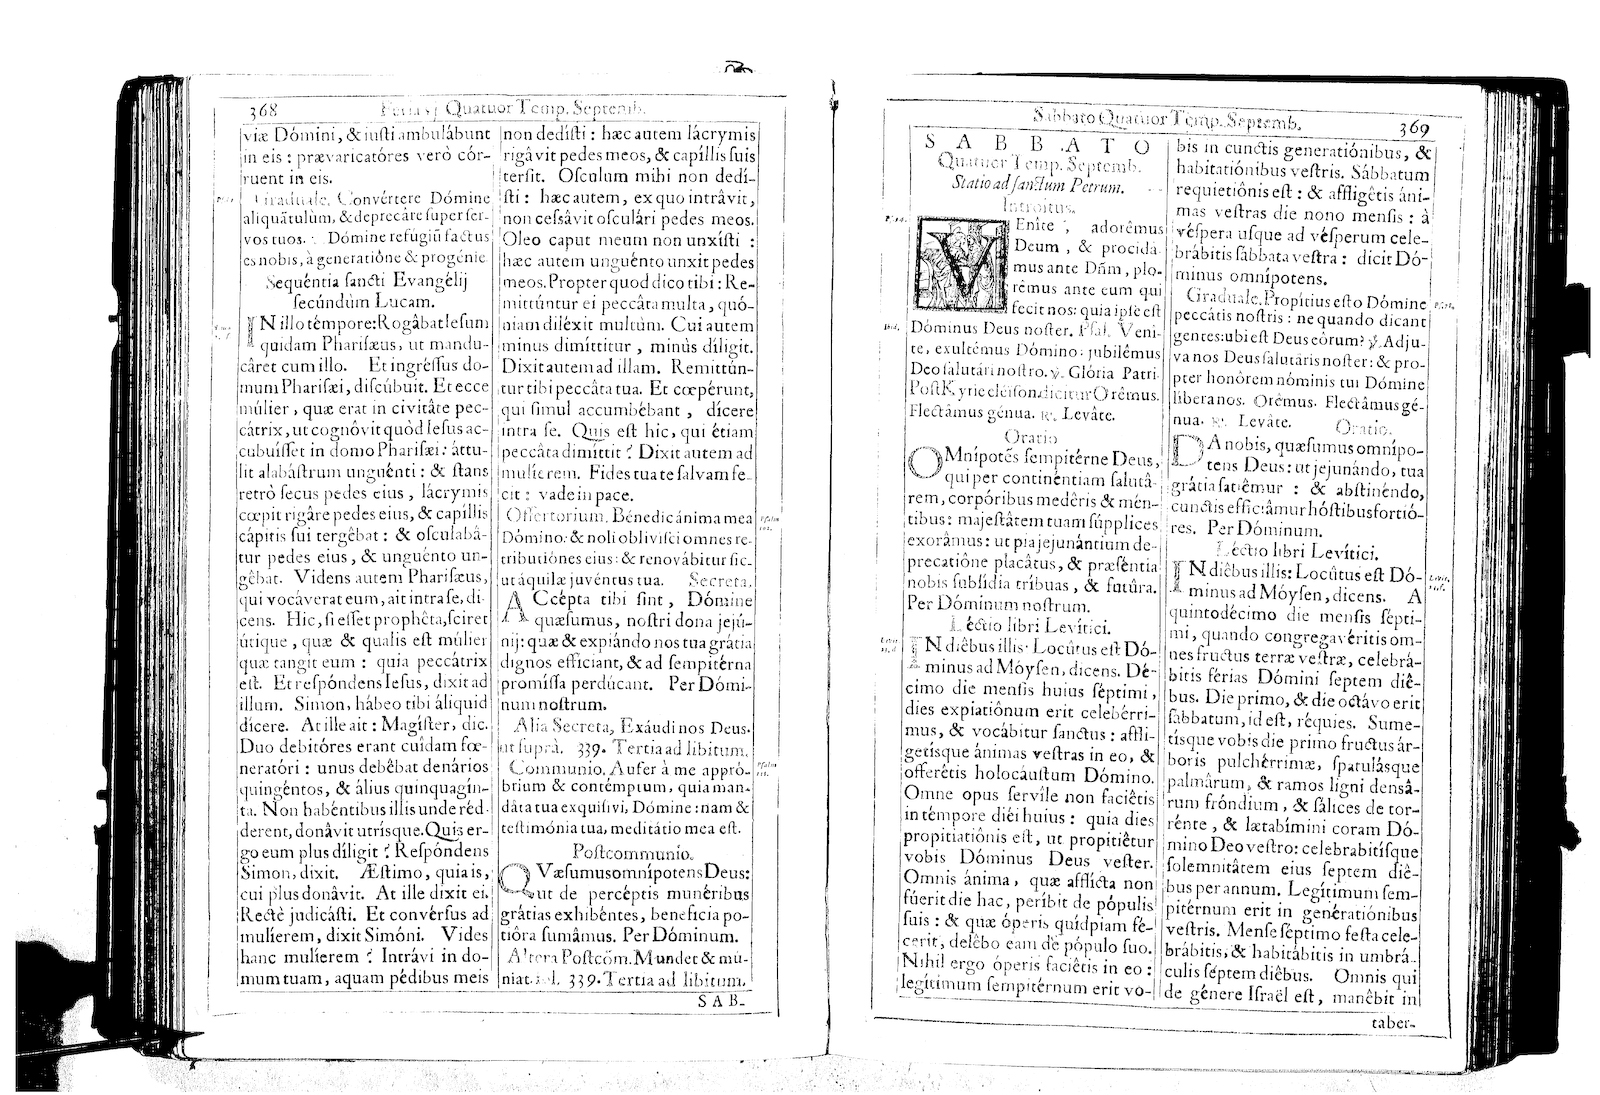 368 Feria vj Quatuor Temp. Septemb.
viæ Dómini, & iuſti ambulábunt
in eis : prævaricatóres verò cór-
ruent in eis.
Graduale. Convértere Dómine
aliquātulùm, & deprecáre ſuper ſer-
vos tuos. Dómine refugiũ factus
es nobis, à generatiône & progénie.
Sequéntia ſancti Evangélij
ſecúndùm Lucam.
IN illo témpore: Rogâbat Ieſum
quidam Phariſæus, ut mandu-
câret cum illo. Et ingréſſus do-
mum Phariſæi, diſcúbuit. Et ecce
múlier, quæ erat in civitâte pec-
cátrix, ut cognôvit quòd Ieſus ac-
cubuíſſet in domo Phariſæi : áttu-
lit alabáſtrum unguénti : & ſtans
retrò ſecus pedes eius, lácrymis
cœpit rigâre pedes eius, & capíllis
cápitis ſui tergêbat : & oſculabâ-
tur pedes eius, & unguénto un-
gêbat. Videns autem Phariſæus,
qui vocáverat eum, ait intra ſe, di-
cens. Hic, ſi eſſet prophêta, ſciret
útique, quæ & qualis eſt múlier
quæ tangit eum : quia peccátrix
eſt. Et reſpóndens Ieſus, dixit ad
illum. Simon, hábeo tibi áliquid
dícere. At ille ait : Magíſter, dic.
Duo debitóres erant cuídam fœ-
neratóri : unus debêbat denários
quingéntos, & álius quinquagín-
ta. Non habéntibus illis unde réd-
derent, donâvit utrísque. Quis er-
go eum plus díligit ? Reſpóndens
Simon, dixit. Æſtimo, quia is,
cui plus donâvit. At ille dixit ei.
Rectè judicáſti. Et convérſus ad
mulíerem, dixit Simóni. Vides
hanc mulíerem ? Intrávi in do-
mum tuam, aquam pédibus meis
non dedíſti : hæc autem lácrymis
rigâvit pedes meos, & capíllis ſuis
terſit. Oſculum mihi non dedí-
ſti : hæc autem, ex quo intrâvit,
non ceſsâvit oſculári pedes meos.
Oleo caput meum non unxíſti :
hæc autem unguénto unxit pedes
meos. Propter quod dico tibi : Re-
mittúntur ei peccâta multa, quó-
niam diléxit multùm. Cui autem
minus dimíttitur, minùs díligit.
Dixit autem ad illam. Remittún-
tur tibi peccâta tua. Et cœpérunt,
qui ſimul accumbêbant, dícere
intra ſe. Quis eſt hic, qui étiam
peccâta dimíttit ? Dixit autem ad
mulíerem. Fides tua te ſalvam fe-
cit : vade in pace.
Offertorium. Bénedic ánima mea
Dómino: & noli obliviſci omnes re-
tributiónes eius: & renovâbitur ſic-
ut áquilæ juvéntus tua. Secreta.
ACcépta tibi ſint, Dómine
quæſumus, noſtri dona jejú-
nij: quæ & expiándo nos tua grátia
dignos effíciant, & ad ſempitérna
promíſſa perdúcant. Per Dómi-
num noſtrum.
Alia Secreta, Exáudi nos Deus.
ut ſuprà. 339. Tertia ad libitum.
Communio. Aufer à me appró-
brium & contémptum, quia man-
dâta tua exquiſívi, Dómine : nam &
teſtimónia tua, meditátio mea eſt.
Poſtcommunio.
QVæſumus omnípotens Deus:
ut de percéptis munéribus
grátias exhibéntes, beneficia po-
tióra ſumâmus. Per Dóminum.
Altera Poſtcõm. Mundet & mú-
niat. fol. 339. Tertia ad libitum.
Pſalm
102.
Pſalm
SAB-
Sabbato Quatuor Temp. Septemb. 369
SABBATO
Quatuor Temp. Septemb.
Statio ad ſanctum Petrum.
Introitus.
VEníte, adorêmus
Deum, & procidâ
mus ante Dñm, plo-
rêmus ante eum qui
fecit nos: quia ipſe eſt
Dóminus Deus noſter. Pſal. Vení-
te, exultémus Dómino: jubilémus
Deo ſalutári noſtro. ℣. Glória Patri
Poſt Kyrie eleiſon, dicitur Orêmus.
Flectâmus génua. ℟. Levâte.
Oratio
OMnípotẽs ſempitérne Deus,
qui per continéntiam ſalutâ-
rem, corpóribus medêris & mén-
tibus: majeſtâtem tuam ſúpplices
exorâmus: ut pia jejunántium de-
precatiône placâtus, & præſéntia
nobis ſubſídia tríbuas, & futûra.
Per Dóminum noſtrum.
Léctio libri Levítici.
IN diêbus illis. Locûtus eſt Dó-
minus ad Móyſen, dicens. Dé-
cimo die menſis huius ſéptimi,
dies expiatiônum erit celebérri-
mus, & vocâbitur ſanctus : affli-
getíſque ánimas veſtras in eo, &
offerétis holocáuſtum Dómino.
Omne opus ſervíle non faciêtis
in témpore diéi huius : quia dies
propitiatiônis eſt, ut propitiêtur
vobis Dóminus Deus veſter.
Omnis ánima, quæ afflícta non
fúerit die hac, períbit de pópulis
ſuis : & quæ óperis quídpiam fé-
cerit, delêbo eam de pópulo ſuo.
Nihil ergo óperis faciêtis in eo :
legítimum ſempitérnum erit vo-
bis in cunctis generatiónibus, &
habitatiónibus veſtris. Sábbatum
requietiônis eſt : & affligêtis áni-
mas veſtras die nono menſis : à
véſpera uſque ad véſperum cele-
brábitis ſábbata veſtra : dicit Dó-
minus omnípotens.
Graduale. Propítius eſto Dómine
peccátis noſtris : ne quando dicant
gentes: ubi eſt Deus eórum? ℣. Adju-
va nos Deus ſalutáris noſter : & pro-
pter honôrem nóminis tui Dómine
libera nos. Orémus. Flectâmus gé-
nua. ℟. Levâte. Oratio.
DA nobis, quæſumus omnípo-
tens Deus: ut jejunándo, tua
grátia ſatiêmur : & abſtinéndo,
cunctis efficiâmur hóſtibus fortió-
res. Per Dóminum.
Léctio libri Levítici.
IN diêbus illis: Locûtus eſt Dó-
minus ad Móyſen, dicens. A
quintodécimo die menſis ſépti-
mi, quando congregavéritis om-
nes fructus terræ veſtræ, celebrá-
bitis férias Dómini ſeptem diê-
bus. Die primo, & die octávo erit
ſábbatum, id eſt, réquies. Sume-
tíſque vobis die primo fructus ár-
boris pulchérrimæ, ſpatuláſque
palmârum, & ramos ligni denſâ-
rum fróndium, & ſálices de tor-
rénte, & lætabímini coram Dó-
mino Deo veſtro: celebrabitíſque
ſolemnitâtem eius ſeptem diê-
bus per annum. Legítimum ſem-
pitérnum erit in generatiónibus
veſtris. Menſe ſéptimo feſta cele-
brábitis, & habitábitis in umbrâ-
culis ſéptem diêbus. Omnis qui
de génere Iſraël eſt, manêbit in
taber-